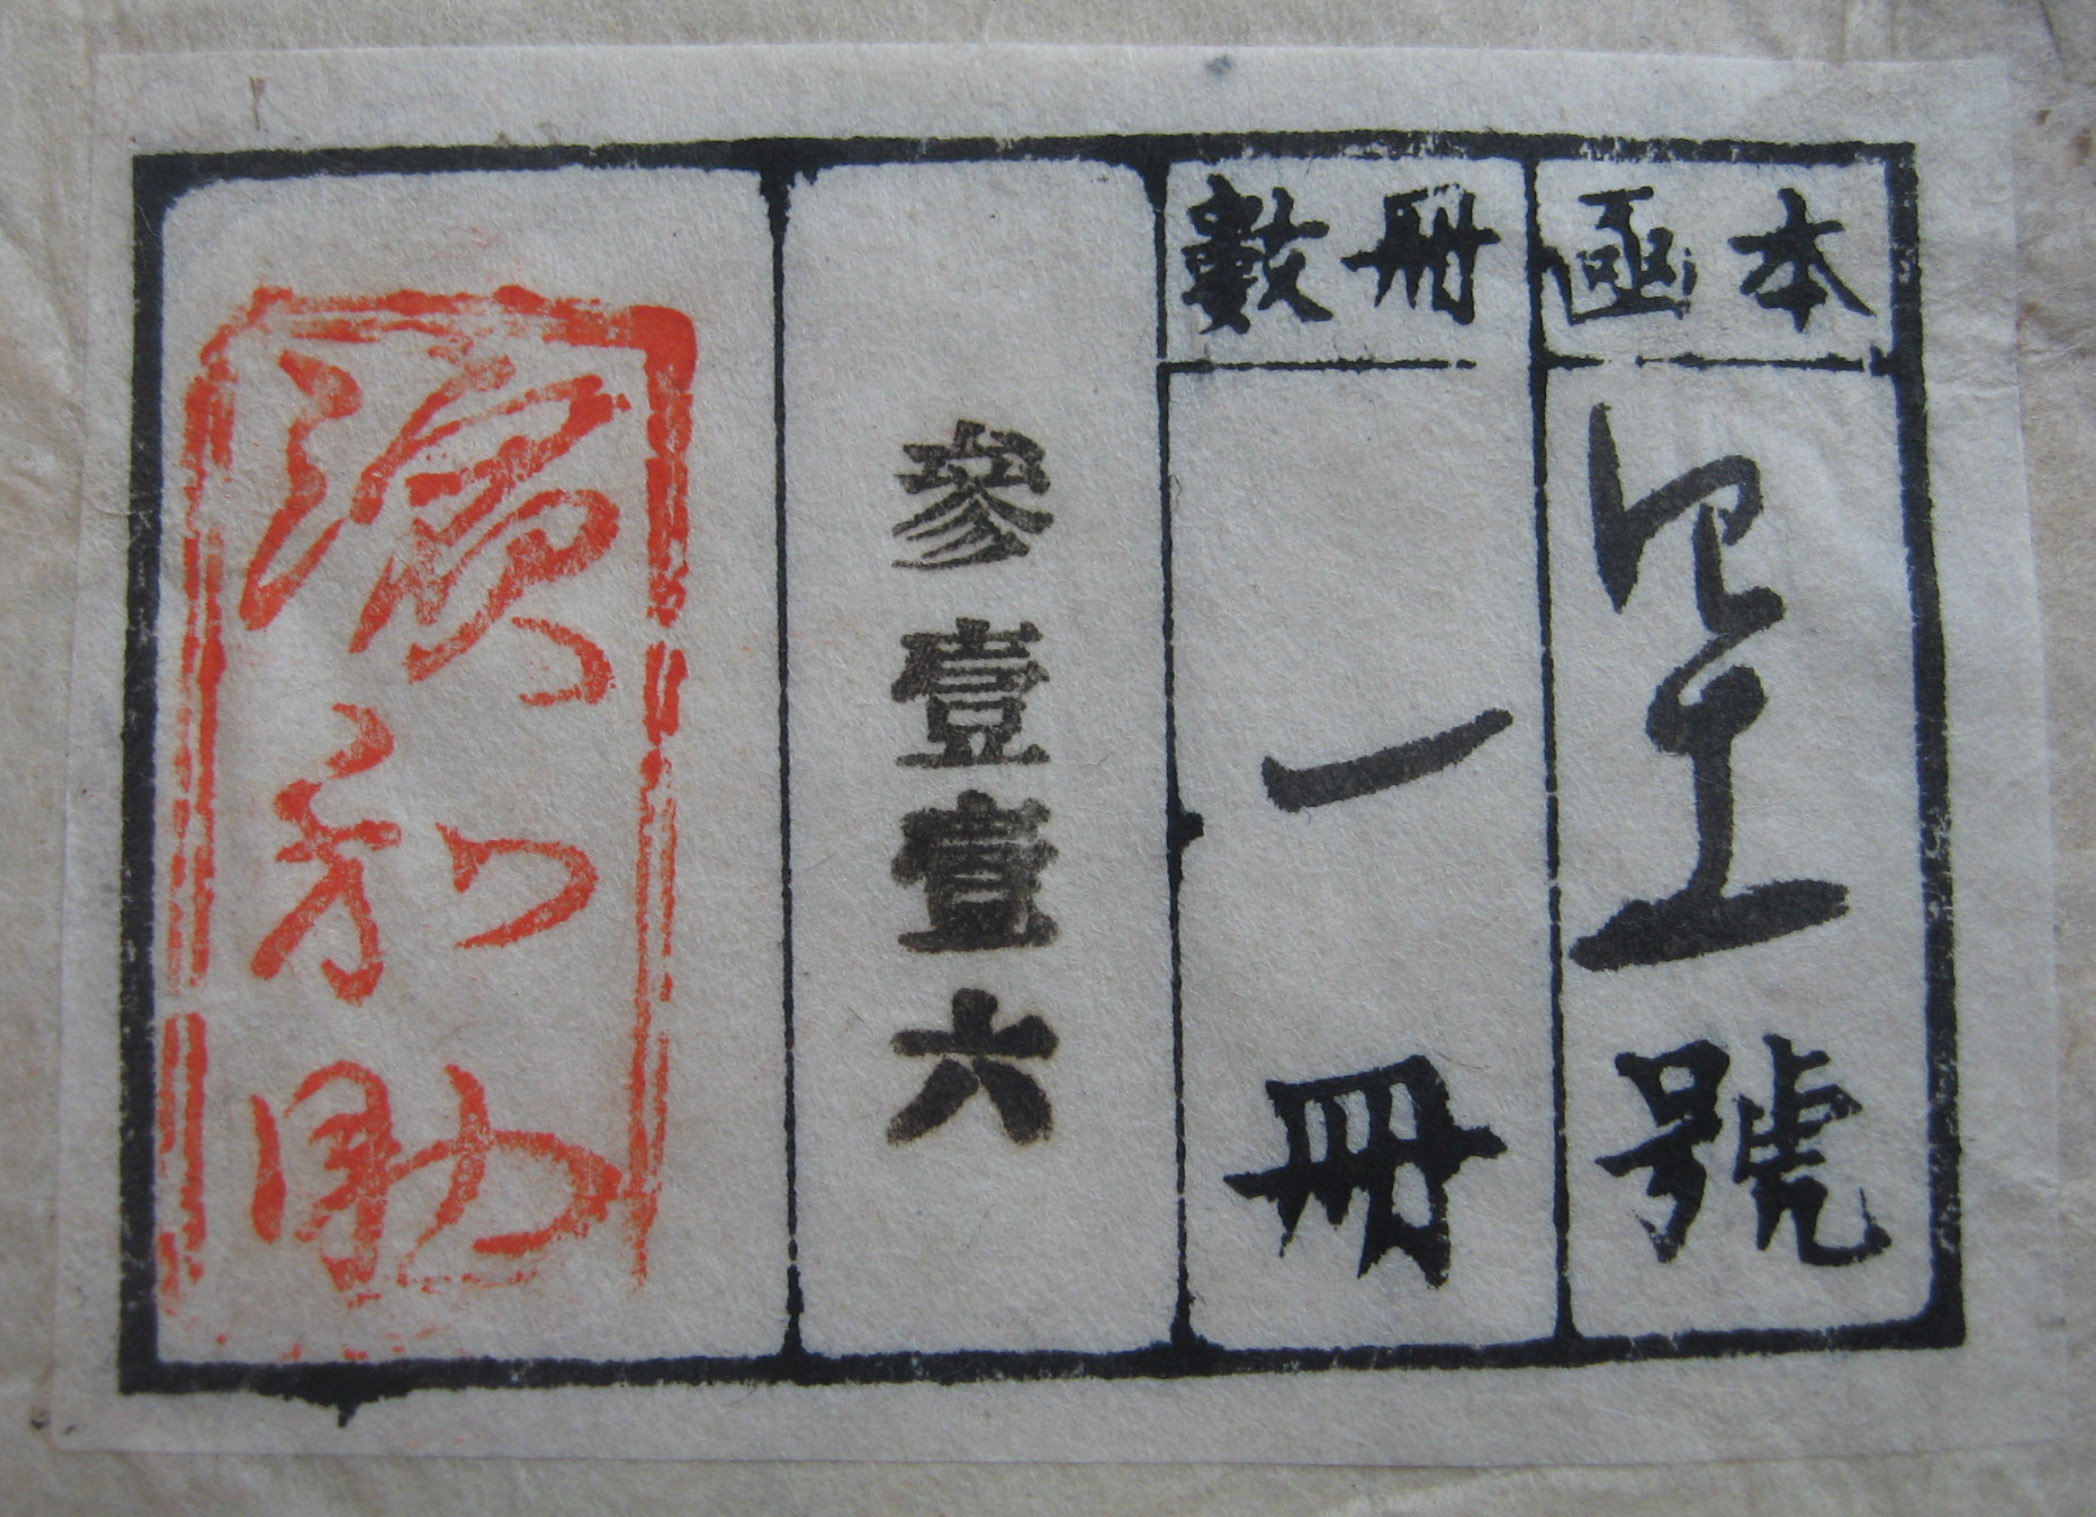 本函
號
冊數
一
冊
參壹壹六
和助